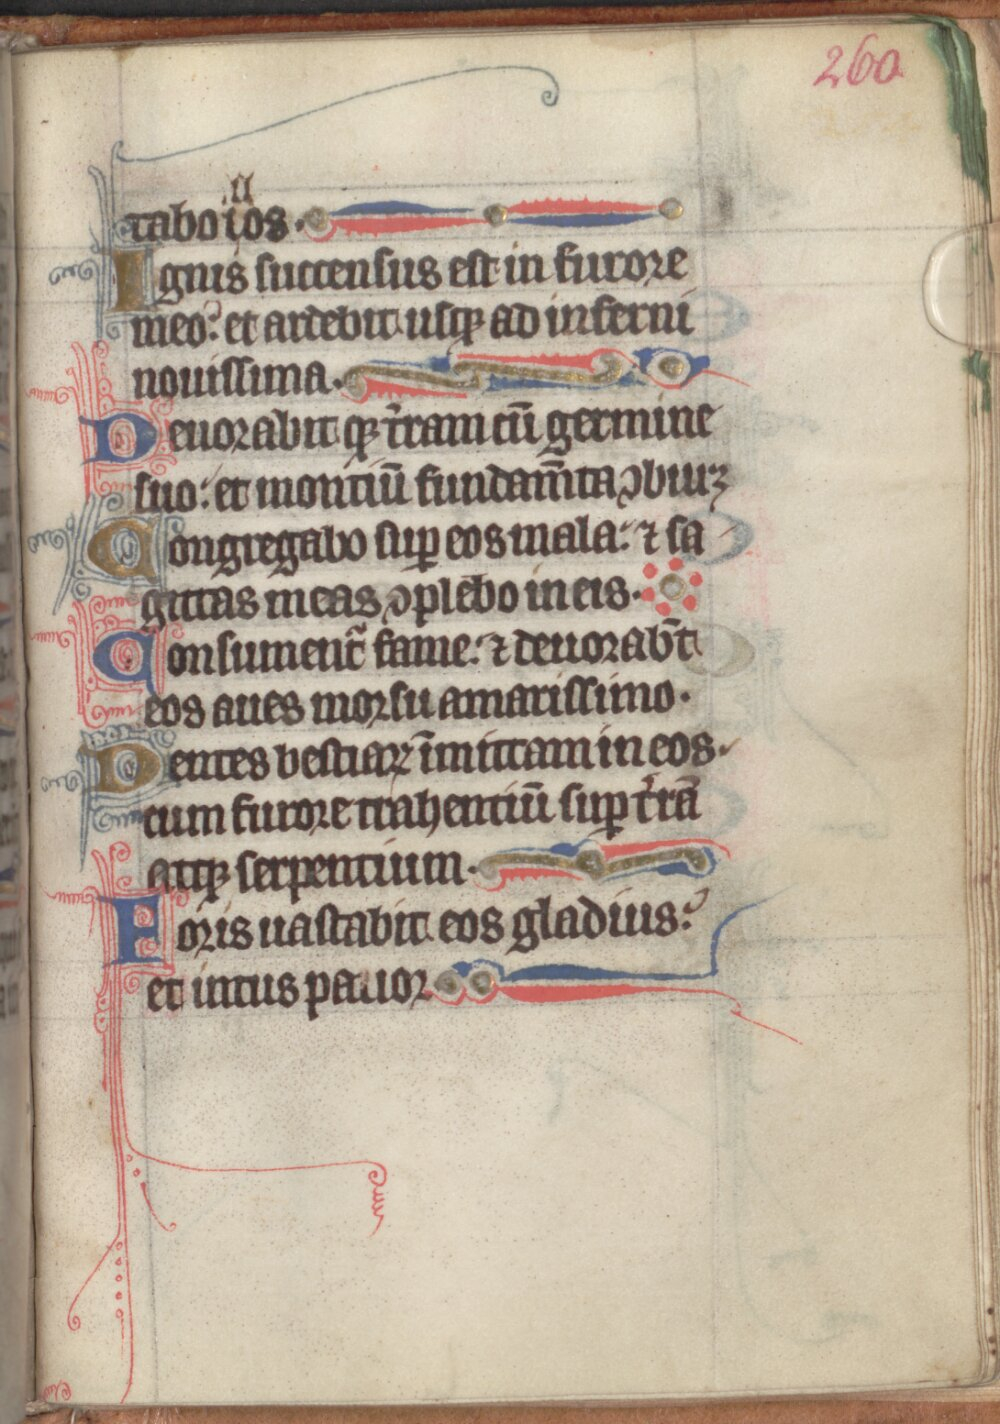 260
tabo ıos.
Ignis succensus est in furore
meo: et ardebit usqꝫ ad inferni
nouissima.
Deuorabit qꝫ t̄ram cū germine
suo: et montiū fundam̄ta ↄburꝫ
Congregabo suꝑ eos mala: ⁊ sa
gittas meas ↄplebo in eis.
Consumenť fame: ⁊ deuorab̄t
eos aues morsu amarissimo.
Dentes bestiaꝝ īmittam in eos.
cum furore trahentiū suꝑ t̄rā
atqꝫ serpentium.
Foris uastabit eos gladius:
et intus pauor